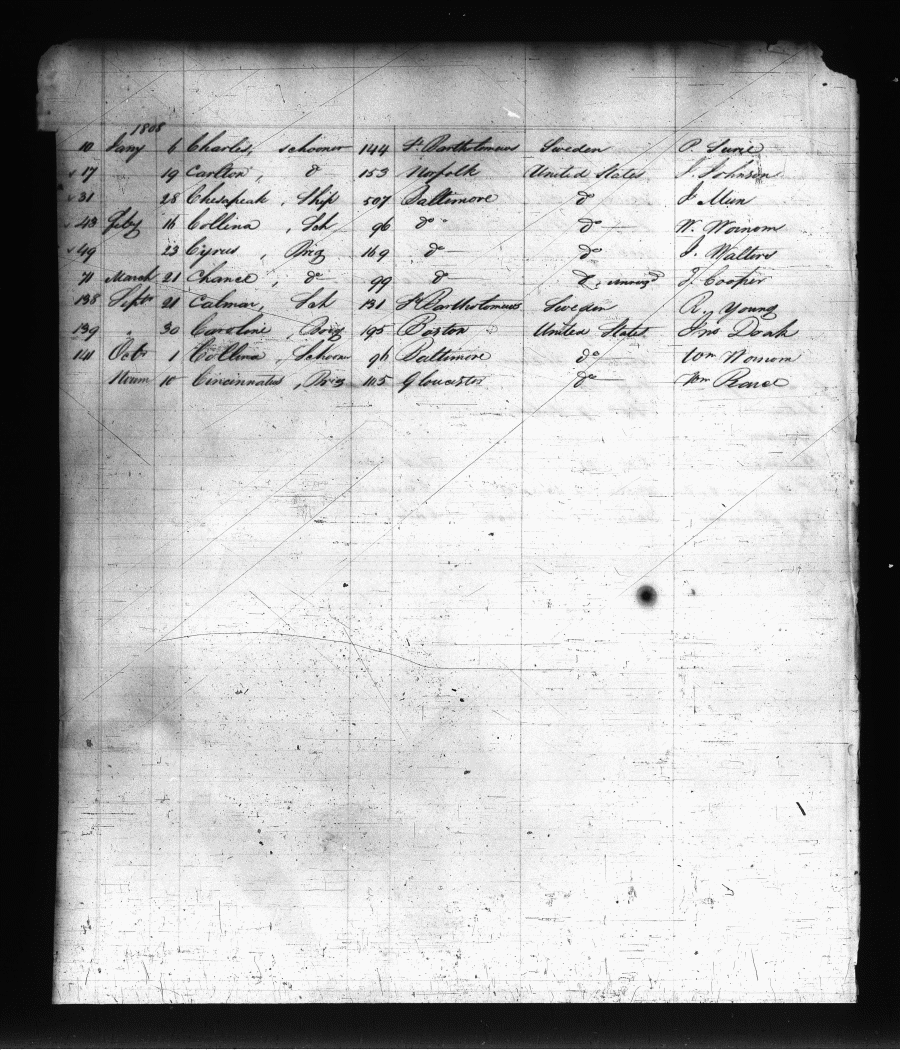 1808
10 Jany 6 Charles, schooner 144 St. Bartholomews Sweden P.
17 19 Carlton, do 153 Norfolk United States J. Johnson
31 28 Chesepeak, Ship 507 Baltimore do J.
43 Feby 16 Collina, Sch 96 do do W. Wornom
49 23 Cyrus, Brig 169 do do J. Walters
71 March 21 Chance, do 99 do do J. Cooper
138 Septr 21 Calmar, Sch 131 St Bartholomews Sweden R. Young
139 " 30 Caroline, Brig 195 Boston United States Jno Doak
141 Octr 1 Collina, Schoon 96 Baltimore do Wm Wornom
Novem 10 Cincinnatus, Brig 115 Gloucester do Wm Pearce